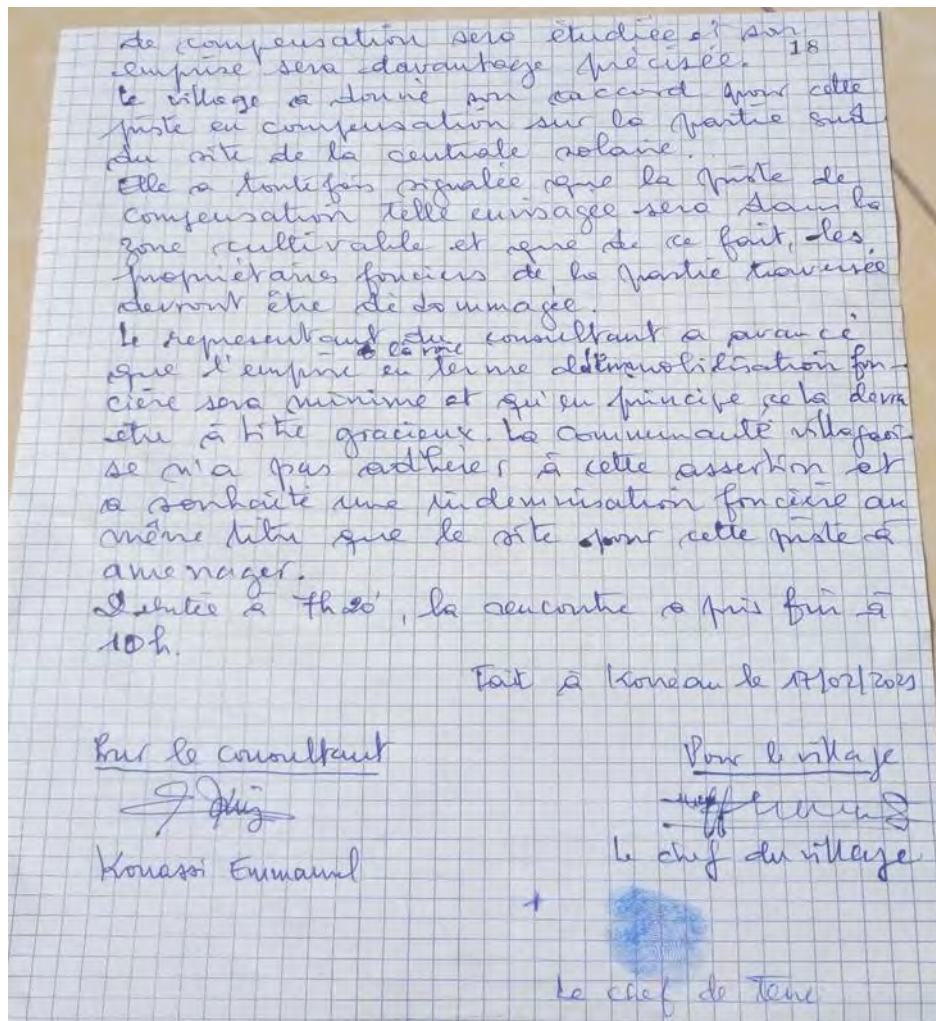 de compensation sera étudiée et son
18
emprise sera davantage précisée.
Le village a donné son accord pour cette
piste en compensation sur la partie sud
du site de la centrale solaire.
Elle a toutefois signalée que la piste de
compensation telle envisagée sera dans la
zone cultivable et que de ce fait, les
propriétaires fonciers de la partie traversée
devront être dédommagée.
Le representant du consultant a avancé
que l'emprise en terme d'immobilisation fon-
cière sera minime et qu'en principe cela devra
être à titre gracieux. La communauté villageoi-
se n'a pas adhérer à cette assertion et
a souhaité une indemnisation foncière au
même titre que le site pour cette piste à
amenager.
Debutée à 7h20', la rencontre a pris fin à
10h.
Fait à Konéan le 17/02/2021
Pour le consultant
Pour le village
Kouassi Emmanuel
Le chef du village
Le chef de Terre